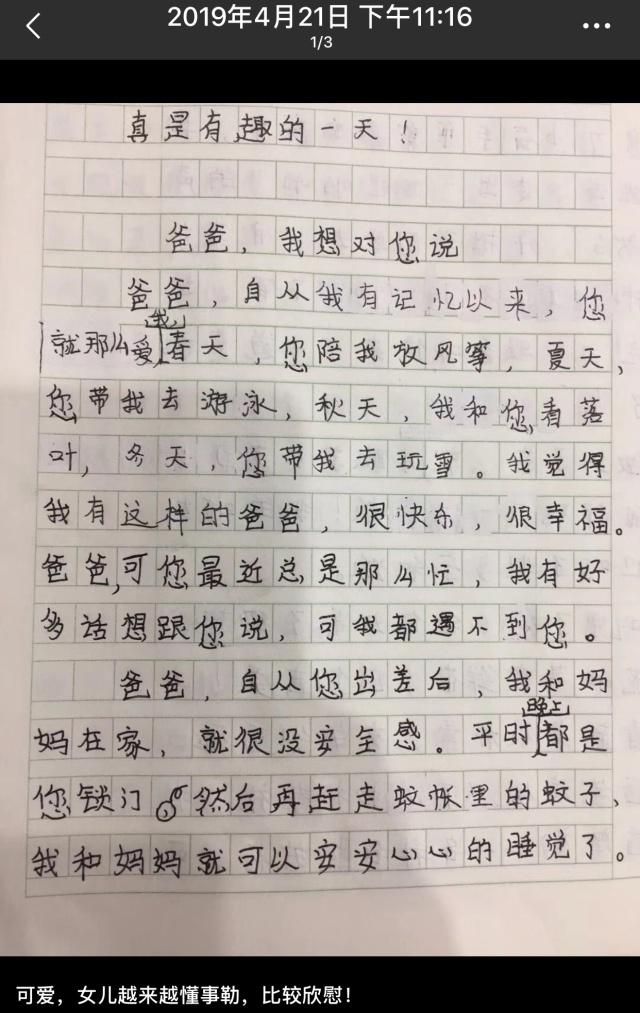 2019年4月21日 下午11:16
1/3
真是有趣的一天！
爸爸，我想对您说
爸爸，自从我有记忆以来，您
就那么爱我，春天，您陪我放风筝，夏天，
您带我去游泳，秋天，我和您看落
叶，冬天，您带我去玩雪。我觉得
我有这样的爸爸，很快乐，很幸福。
爸爸，可您最近总是那么忙，我有好
多话想跟您说，可我都遇不到您。
爸爸，自从您出差后，我和妈
妈在家，就很没安全感。平时晚上都是
您锁门，然后再赶走蚊帐里的蚊子，
我和妈妈就可以安安心心的睡觉了。
可爱，女儿越来越懂事勒，比较欣慰！